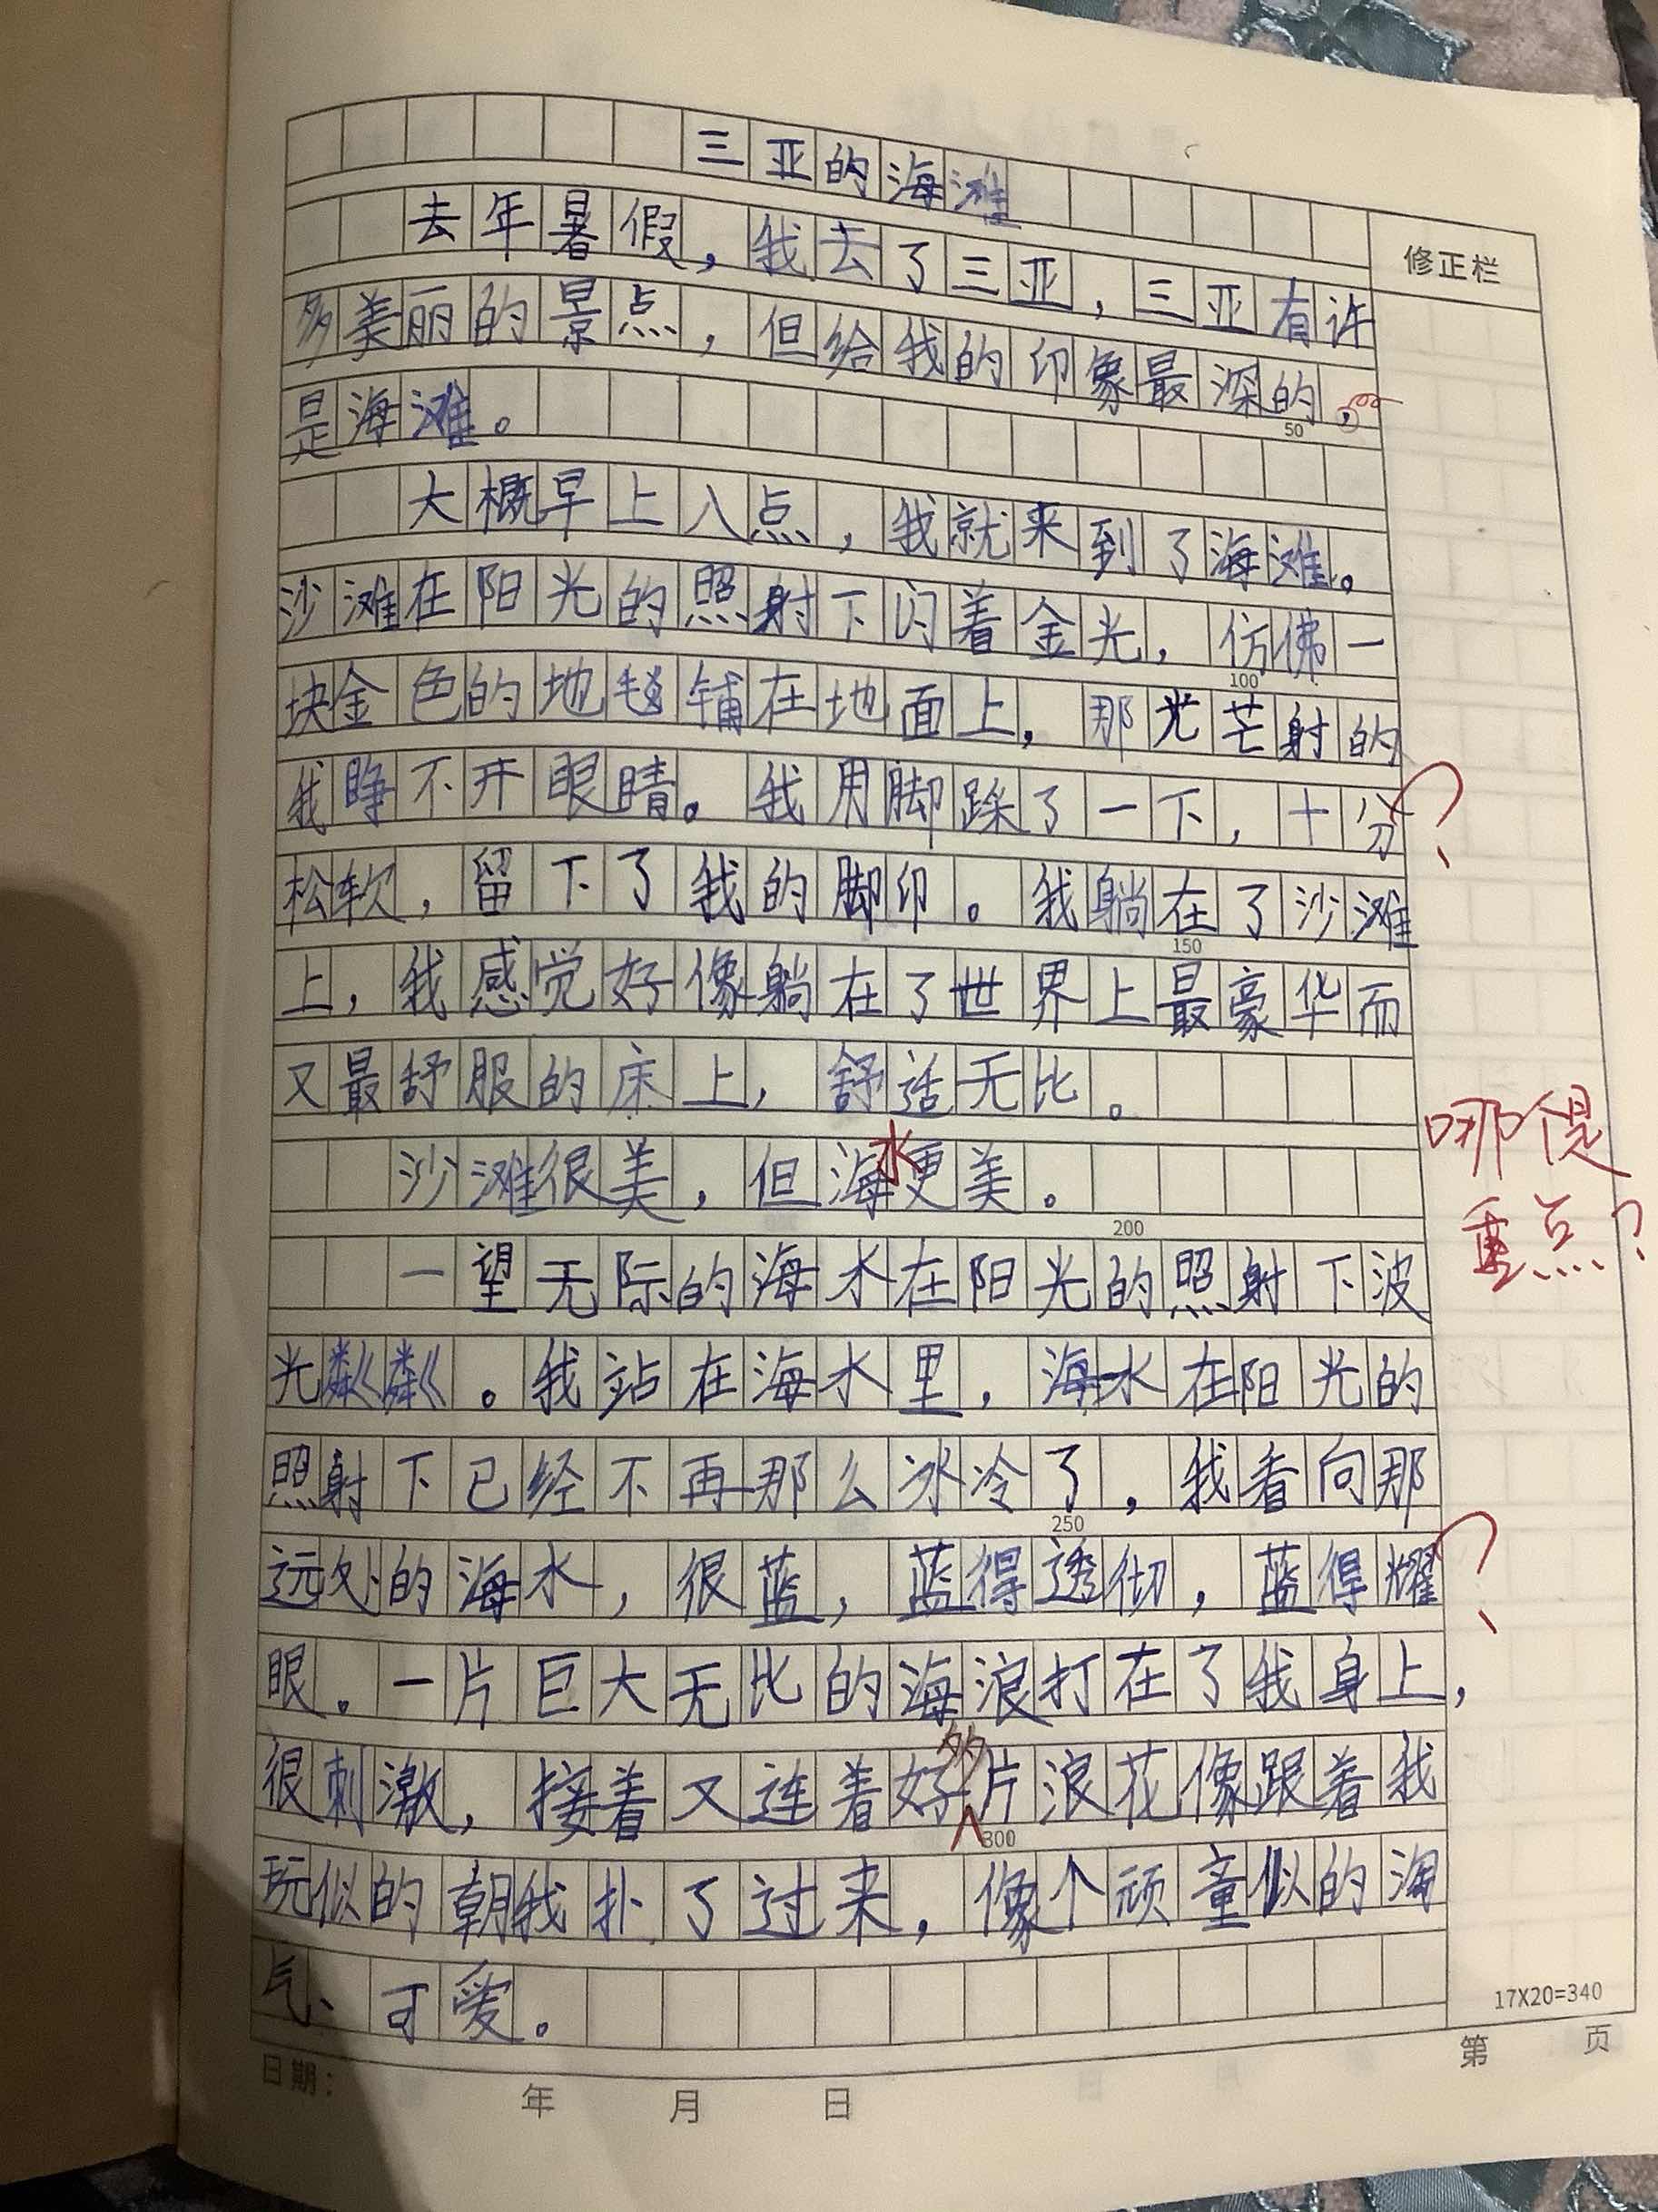 三亚的海滩
去年暑假，我去了三亚，三亚有许
修正栏
多美丽的景点，但给我的印象最深的，
50
是海滩。
大概早上八点，我就来到了海滩。
沙滩在阳光的照射下闪着金光，仿佛一
100
块金色的地毯铺在地面上，那光芒射的
我睁不开眼睛。我用脚踩了一下，十分
？
松软，留下了我的脚印。我躺在了沙滩
150
上，我感觉好像躺在了世界上最豪华而
又最舒服的床上，舒适无比。
沙滩很美，但海水更美。
哪是
重点？
200
一望无际的海水在阳光的照射下波
光粼粼。我站在海水里，海水在阳光的
照射下已经不再那么冰冷了，我看向那
250
远处的海水，很蓝，蓝得透彻，蓝得耀
？
眼。一片巨大无比的海浪打在了我身上，
很刺激，接着又连着好多片浪花像跟着我
300
玩似的朝我扑了过来，像个顽童似的淘
气、可爱。
17X20=340
日期： 年 月 日
第 页